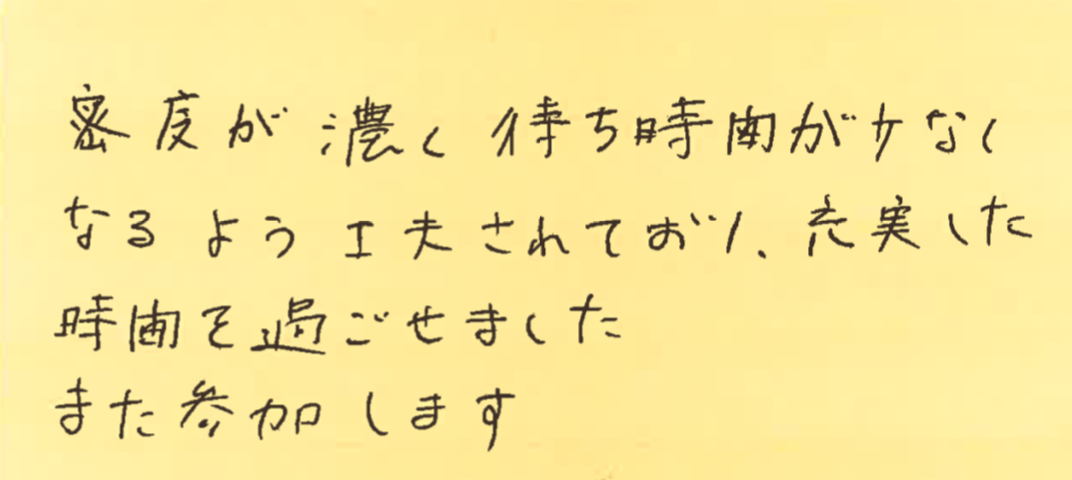 密度が濃く待ち時間が少なく
なるよう工夫されており、充実した
時間を過ごせました
また参加します